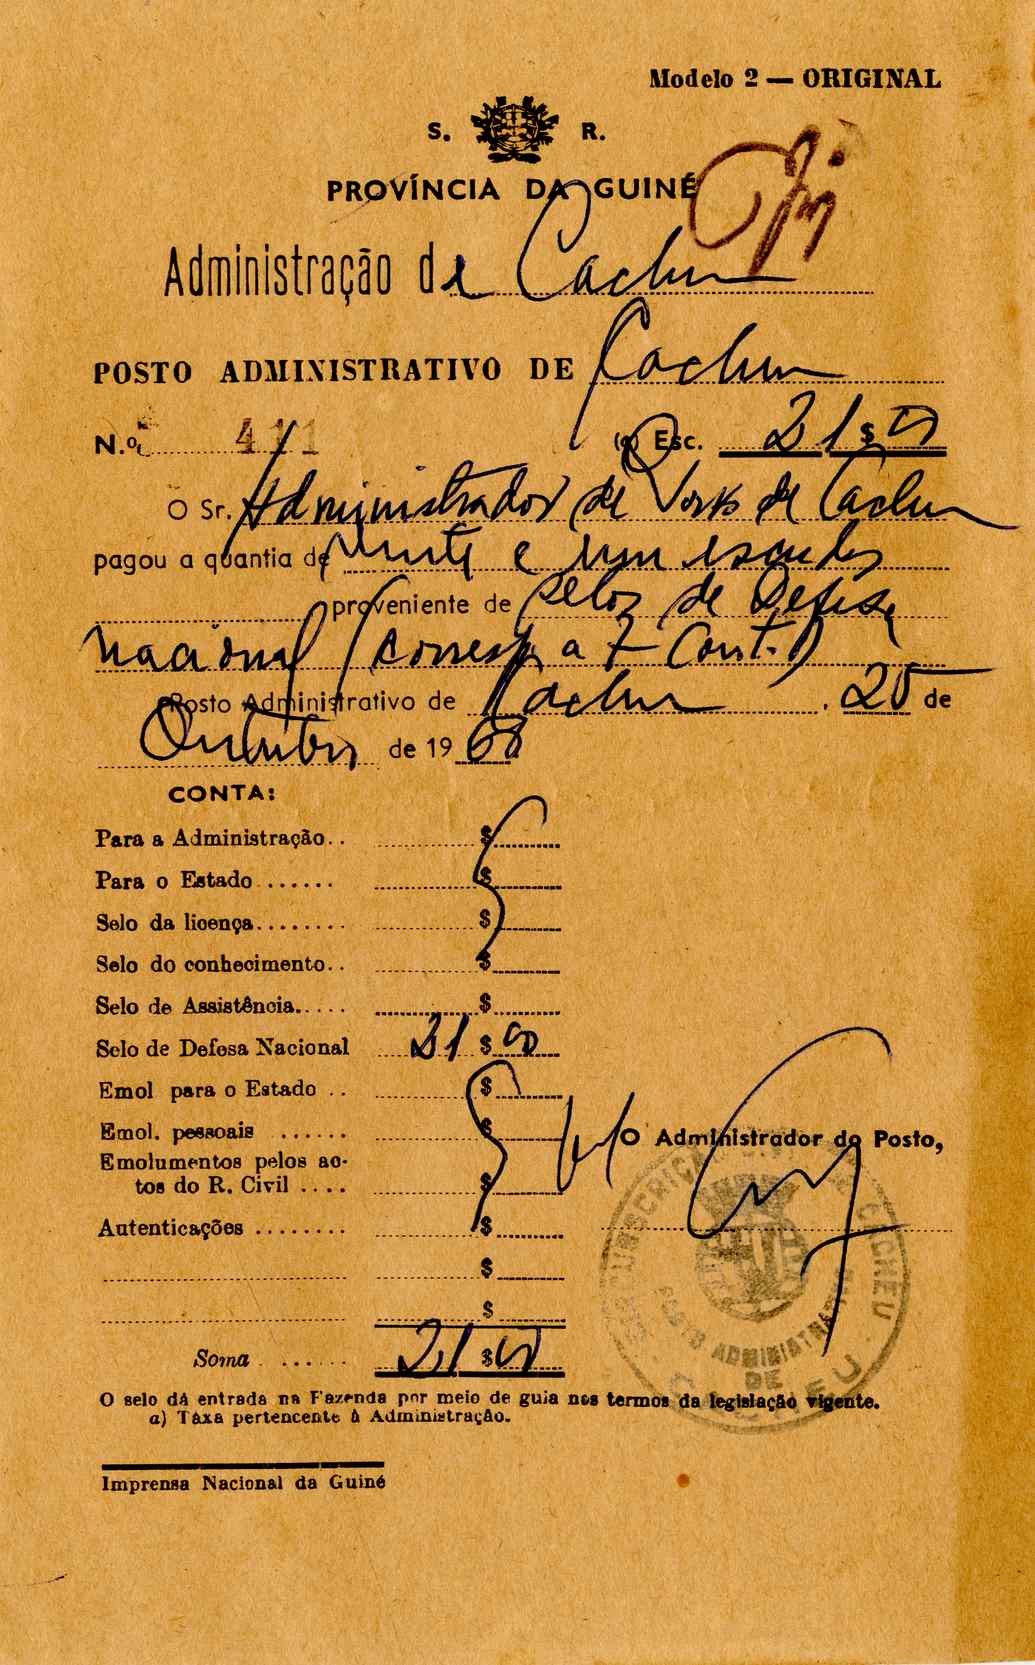 Modelo 2 — ORIGINAL
S. R.
PROVÍNCIA DA GUINÉ
Administração de Cacheu
POSTO ADMINISTRATIVO DE Cacheu
N.º 411 (a) Esc. 21$00
O Sr. Administrador de Posto de Cacheu
pagou a quantia de vinte e um escudos
proveniente de selos de Defesa
Nacional (corresp. a 7 Cont.)
Posto Administrativo de Cacheu, 25 de
Outubro de 1968
CONTA:
Para a Administração.. $
Para o Estado ...... $
Selo da licença........ $
Selo do conhecimento.. $
Selo de Assistência..... $
Selo de Defesa Nacional 21$00
Emol para o Estado .. $
Emol. pessoais ...... $
O Administrador do Posto,
Emolumentos pelos ac-
tos do R. Civil .... $
Autenticações ........ $
$
$
Soma ...... 21$00
CIRCUNSCRIÇÃO CIVIL DE CACHEU
POSTO ADMINISTRATIVO
DE
CACHEU
O selo dá entrada na Fazenda por meio de guia nos termos da legislação vigente.
a) Taxa pertencente à Administração.
Imprensa Nacional da Guiné